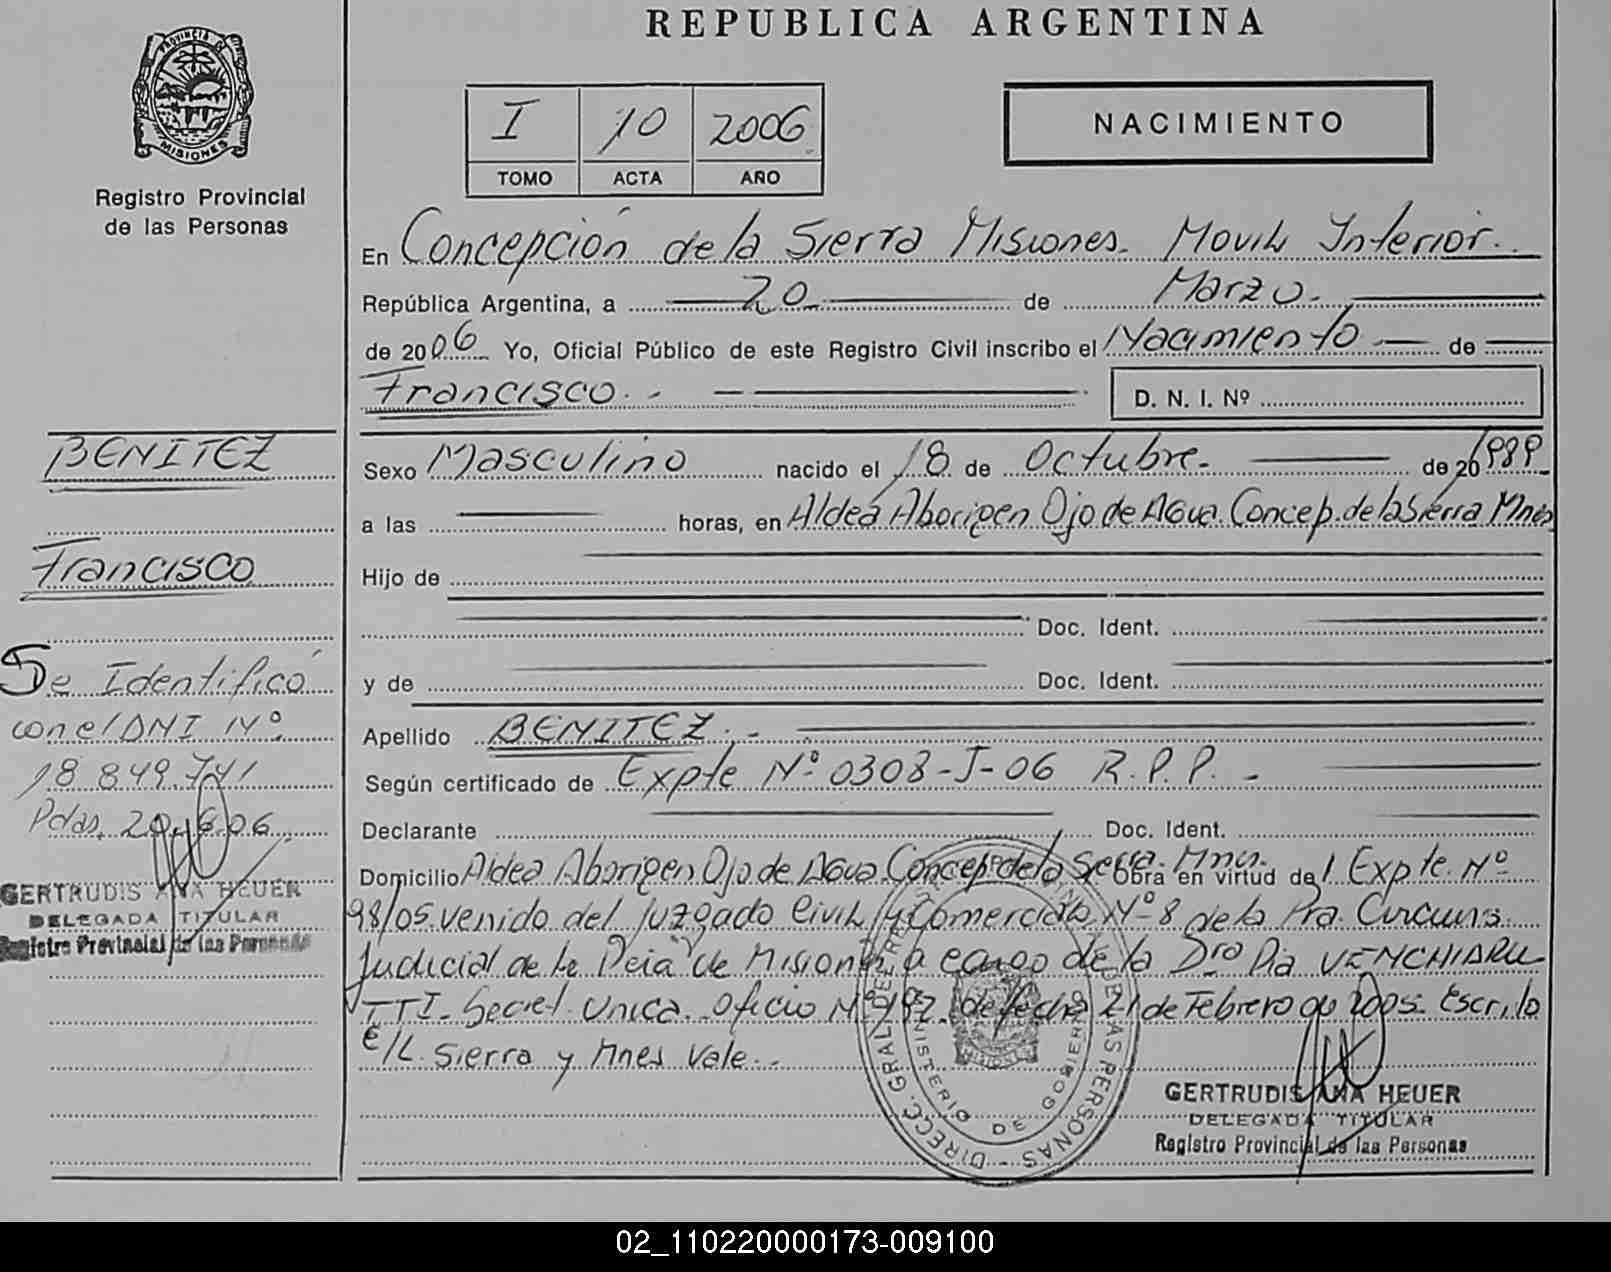 REPUBLICA ARGENTINA
PROVINCIA DE
MISIONES
Registro Provincial
de las Personas
I 10 2006
TOMO ACTA AÑO
NACIMIENTO
En Concepción de la Sierra Misiones. Movil Interior.
República Argentina, a 20 de Marzo.
de 2006 Yo, Oficial Público de este Registro Civil inscribo el Nacimiento de
Francisco. D. N. I. Nº
BENITEZ
Francisco
Se Identificó
con el DNI Nº
18 849.741
Pdas. 20 06
GERTRUDIS ANA HEUER
DELEGADA TITULAR
Registro Provincial de las Personas
Sexo Masculino nacido el 18 de Octubre. de 20 1989
a las horas, en Aldea Aborigen Ojo de Agua. Concep. de la Sierra Mnes
Hijo de
Doc. Ident.
y de Doc. Ident.
Apellido BENITEZ.
Según certificado de Expte Nº 0308-J-06 R.P.P.
Declarante Doc. Ident.
Domicilio Aldea Aborigen Ojo de Agua. Concep. de la Sierra. Mnes. Obra en virtud del Expte. Nº
98/05. venido del Juzgado Civil y Comercial Nº 8 de la Pra. Circuns.
Judicial de la Pcia de Misiones a cargo de la Dra Pia VENCHIARU
TTI. Secret. Unica. Oficio Nº de fecha 21 de Febrero de 2005. Escrito
E/L. Sierra y Mnes Vale.
DIRECC. GRAL. DE REGISTRO PROVINCIAL DE LAS PERSONAS
MINISTERIO DE GOBIERNO
MISIONES
GERTRUDIS ANA HEUER
DELEGADA TITULAR
Registro Provincial de las Personas
02_110220000173-009100